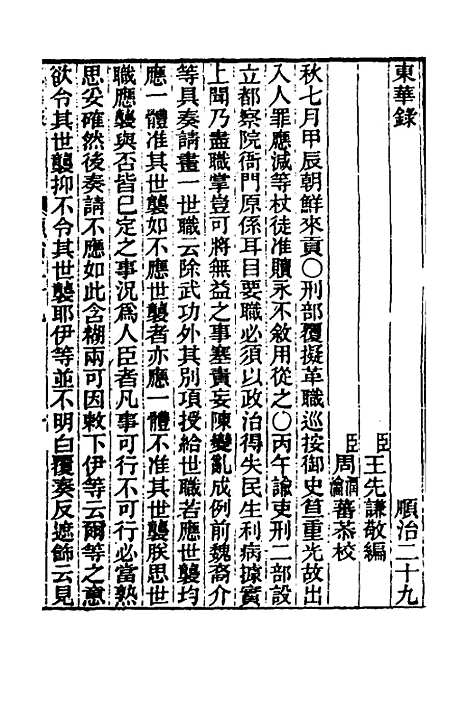 東華錄　順治二十九
臣王先謙敬編
臣周潤蕃周瀹蕃恭校
秋七月甲辰朝鮮來貢〇刑部覆擬革職巡按御史笪重光故出
入人罪應減等杖徒准贖永不敘用從之〇丙午諭吏刑二部設
立都察院衙門原係耳目要職必須以政治得失民生利病據實
上聞乃盡職掌豈可將無益之事塞責妄陳變亂成例前魏裔介
等具奏請畫一世職云除武功外其別項授給世職若應世襲均
應一體准其世襲如不應世襲者亦應一體不准其世襲朕思世
職應襲與否皆已定之事況爲人臣者凡事可行不可行必當熟
思妥確然後奏請不應如此含糊兩可因敕下伊等云爾等之意
欲令其世襲抑不令其世襲耶伊等並不明白覆奏反遮飾云見